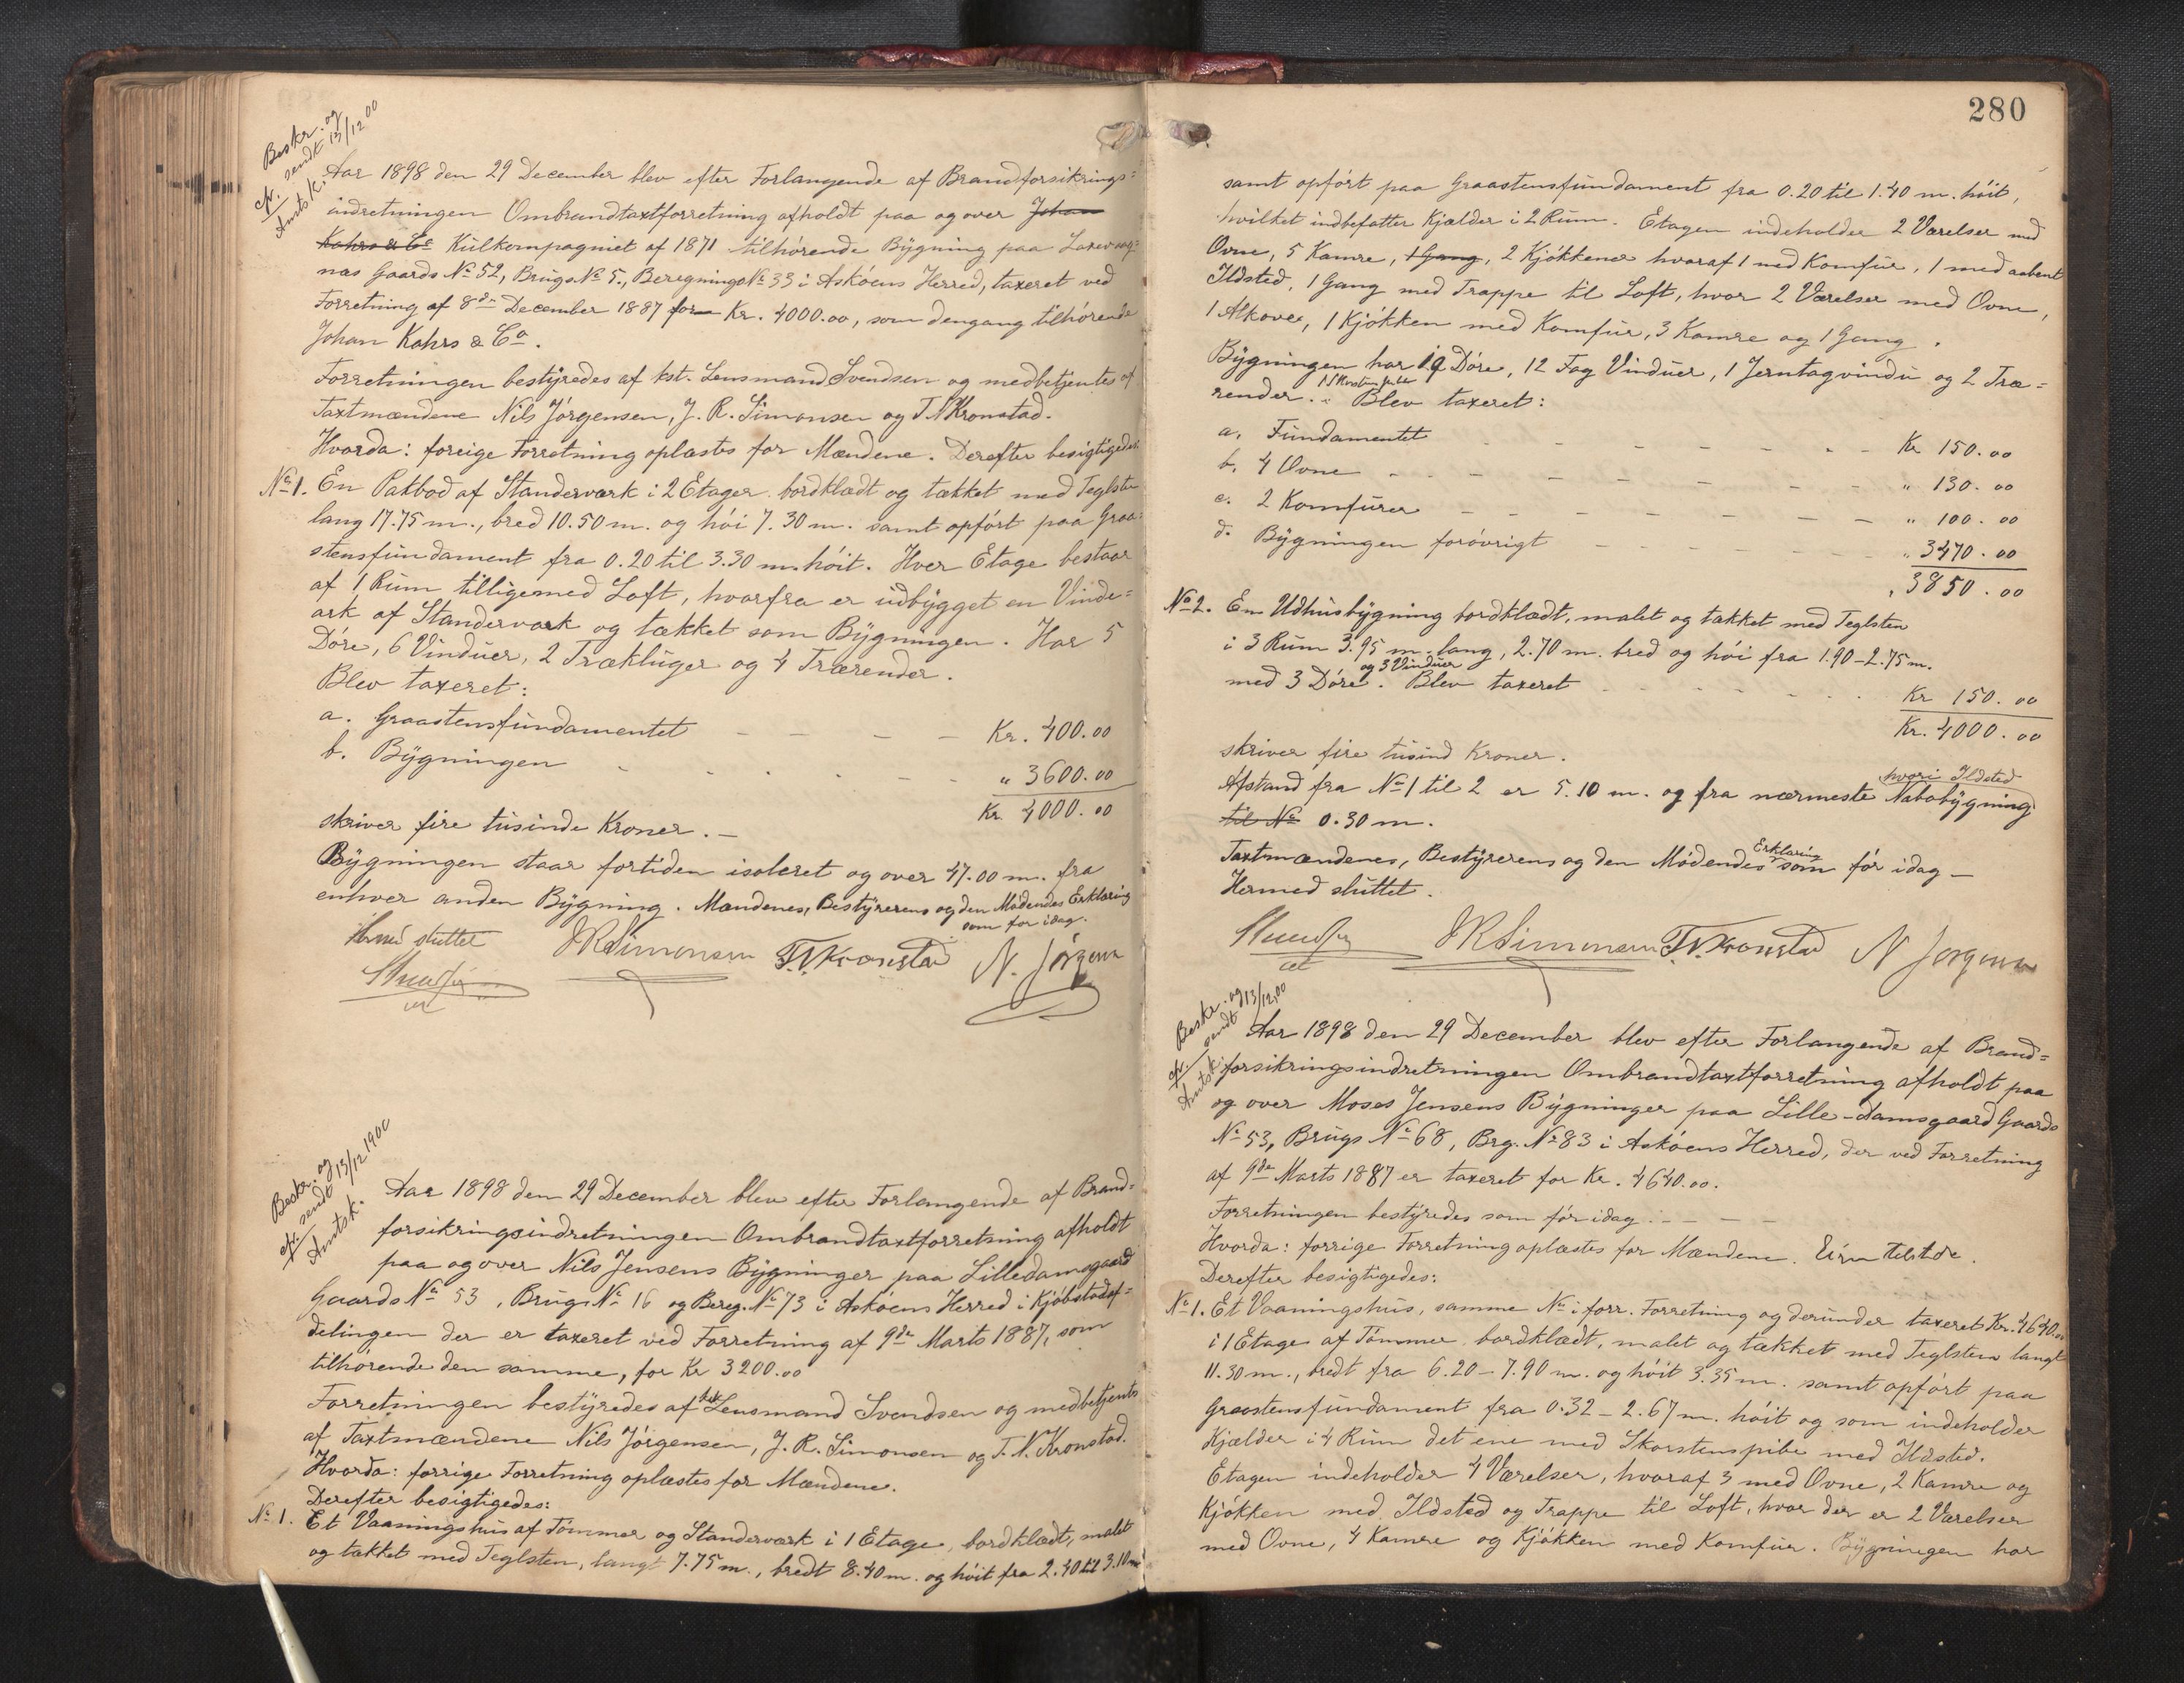 Beskr. og
cfr. sendt 13/12 00
Amtsk.
Aar 1898 den 29 December blev efter Forlangende af Brandforsikrings=
indretningen Ombrandtaxtforretning afholdt paa og over Johan
Kahrs & Co Kulkompagniet af 1871 tilhørende Bygning paa Laxevaag=
nes Gaards No 52, Brugs No 5, Beregnings No 33 i Askøens Herred, taxeret ved
Forretning af 8de December 1887 for Kr. 4000.00, som dengang tilhørende
Johan Kahrs & Co.
Forretningen bestyredes af kst. Lensmand Svendsen og medbetjentes af
Taxtmændene Nils Jørgensen, J. R. Simonsen og T. N. Kronstad.
Hvorda: foreige Forretning oplæstes for Mændene. Derefter besigtigedes
No 1. En Pakbod af Standerværk i 2 Etager bordklædt og tækket med Teglsten
lang 17.75 m., bred 10.50 m. og høi 7.30 m. samt opført paa Graa=
stensfundament fra 0.20 til 3.30 m. høit. Hver Etage bestaar
af 1 Rum tilligemed Loft, hvorfra er udbygget en Vinde=
ark af Standerværk og tækket som Bygningen. Har 5
Døre, 6 Vinduer, 2 Trækluger og 4 Trærender.
Blev taxeret:
a. Graastensfundamentet - - - - Kr. 400.00
b. Bygningen - - - - - " 3600.00
Kr. 4000.00
skriver fire tusinde Kroner. -
Bygningen staar fortiden isoleret og over 47.00 m. fra
enhver anden Bygning. Mændenes, Bestyrerens og den Mødendes Erklæring
som før idag.
Hermed sluttet
JR Simonsen T.N. Kronstad N. Jørgensen
Svendsen
Beskr. og
cfr. sendt 13/12 1900
Amtsk.
Aar 1898 den 29 December blev efter Forlangende af Brand=
forsikringsindretningen Ombrandtaxtforretning afholdt
paa og over Nils Jensens Bygninger paa Lilledamsgaard
Gaards No 53, Brugs No 16 og Bereg. No 73 i Askøens Herred i Kjøbstadaf=
delingen der er taxeret ved Forretning af 9de Marts 1887, som
tilhørende den samme, for Kr 3200.00
Forretningen bestyredes af kst. Lensmand Svendsen og medbetjents
af Taxtmændene Nils Jørgensen, J. R. Simonsen og T. N. Kronstad.
Hvorda: forrige Forretning oplæstes for Mændene.
Derefter besigtigedes:
No 1. Et Vaaningshus af Tømmer og Standerværk i 1 Etage, bordklædt, malet
og tækket med Teglsten, langt 7.75 m., bredt 8.40 m. og høit fra 2.40 til 3.10 m
280
samt opført paa Graastensfundament fra 0.20 til 1.40 m. høit,
hvilket indbefatter Kjælder i 2 Rum. Etagen indeholder 2 Værelser med
Ovne, 5 Kamre, 1 Gang, 2 Kjøkkener hvoraf 1 med Komfur, 1 med aabent
Ildsted, 1 Gang med Trappe til Loft, hvor 2 Værelser med Ovne,
1 Alkover, 1 Kjøkken med Komfur, 3 Kamre og 1 Gang.
Bygningen har 19 Døre, 12 Fag Vinduer, 1 Jerntagvindu og 2 Træ=
render. Blev taxeret:
a. Fundamentet - - - - - Kr 150.00
b. 4 Ovne - - - - - - " 130.00
c. 2 Komfurer - - - - - - " 100.00
d. Bygningen forøvrigt - - - - - " 3470.00
" 3850.00
No 2. En Udhusbygning bordklædt, malet og tækket med Teglsten
i 3 Rum 3.95 m. lang, 2.70 m. bred og høi fra 1.90 - 2.75 m.
med 3 Døre og 3 Vinduer. Blev taxeret - - - - - Kr 150.00
Kr. 4000.00
skriver fire tusind Kroner.
Afstand fra No 1 til 2 er 5.10 m. og fra nærmeste Nabobygning hvori Ildsted
til No 0.30 m.
Taxtmændenes, Bestyrerens og den Mødendes Erklæring som før idag -
Hermed sluttet.
Svendsen JR Simonsen T.N. Kronstad N Jørgensen
Beskr. og
cfr. sendt 13/12.00
Amtsk.
Aar 1898 den 29 December blev efter Forlangende af Brand=
forsikringsindretningen Ombrandtaxtforretning afholdt paa
og over Moses Jensens Bygninger paa Lille-Damsgaard Gaards
No 53, Brugs No 68, Brg. No 83 i Askøens Herred, der ved Forretning
af 9de Marts 1887 er taxeret for Kr. 4640.00.
Forretningen bestyredes som før idag. - - - -
Hvorda: forrige Forretning oplæstes for Mændene.
Derefter besigtigedes:
No 1. Et Vaaningshus, samme No i forr. Forretning og derunder taxeret Kr. 4640.00
i 1 Etage af Tømmer bordklædt, malet og tækket med Teglsten langt
11.30 m., bredt fra 6.20 - 7.90 m. og høit 3.35 m. samt opført paa
Graastensfundament fra 0.32 - 2.67 m. høit og som indeholder
Kjælder i 4 Rum det ene med Skorstenspibe med Ildsted.
Etagen indeholder 4 Værelser, hvoraf 3 med Ovne, 2 Kamre og
Kjøkken med Ildsted og Trappe til Loft, hvor der er 2 Værelser
med Ovne, 4 Kamre og Kjøkken med Komfur. Bygningen har